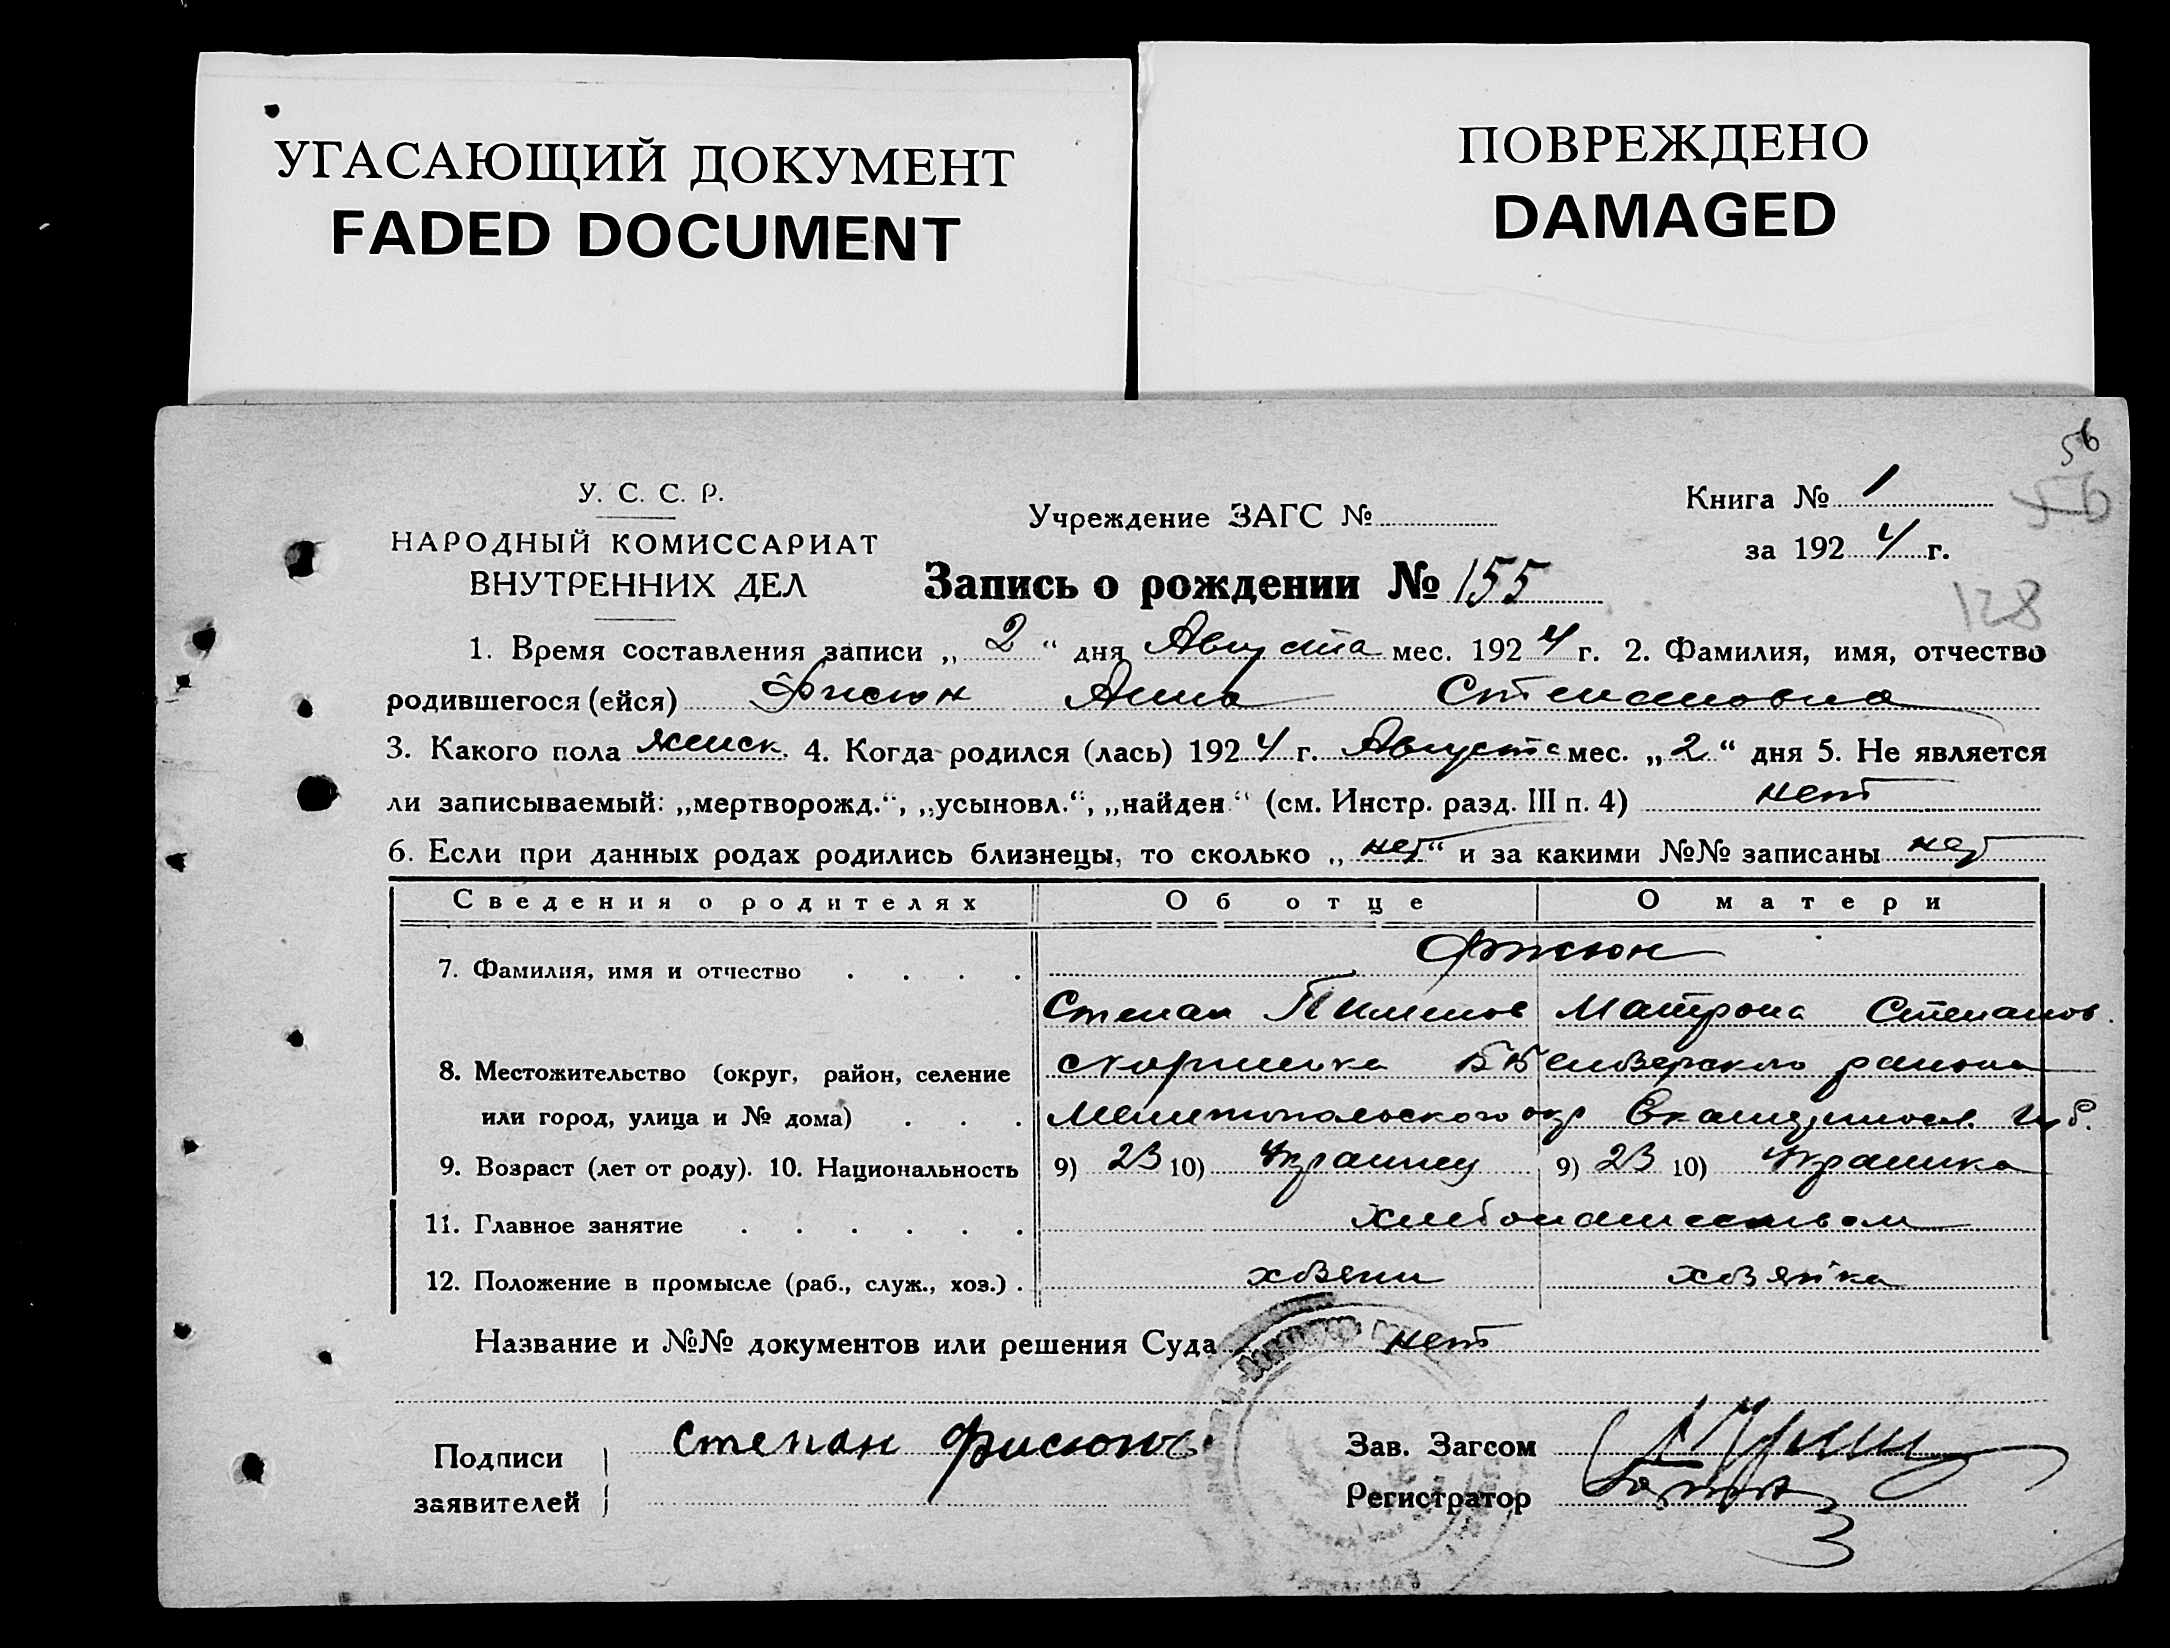 УГАСАЮЩИЙ ДОКУМЕНТ
FADED DOCUMENT
ПОВРЕЖДЕНО
DAMAGED
56
56
У. С. С. Р.
НАРОДНЫЙ КОМИССАРИАТ
ВНУТРЕННИХ ДЕЛ
Учреждение ЗАГС №
Книга № 1
за 1924 г.
Запись о рождении № 155
128
1. Время составления записи „2“ дня Августа мес. 1924 г. 2. Фамилия, имя, отчество
родившегося (ейся) Фисюн Анна Степановна
3. Какого пола женск. 4. Когда родился (лась) 1924 г. Августа мес. „2“ дня 5. Не является
ли записываемый: „мертворожд.“, „усыновл.“, „найден“ (см. Инстр. разд. III п. 4) нет
6. Если при данных родах родились близнецы, то сколько „нет“ и за какими №№ записаны нет
Сведения о родителях Об отце О матери
7. Фамилия, имя и отчество . . . . Фисюн
Степан Пименов Матрона Степанов.
8. Местожительство (округ, район, селение района
или город, улица и № дома) . . . Мелитопольского окр Губ.
9. Возраст (лет от роду). 10. Национальность 9) 23 10) Украинец 9) 23 10) Украинка
11. Главное занятие . . . . . . хлебопашеством
12. Положение в промысле (раб., служ., хоз.) . хозяин хозяйка
Название и №№ документов или решения Суда нет
Подписи
заявителей
Степан Фисюнъ
Зав. Загсом
Регистратор